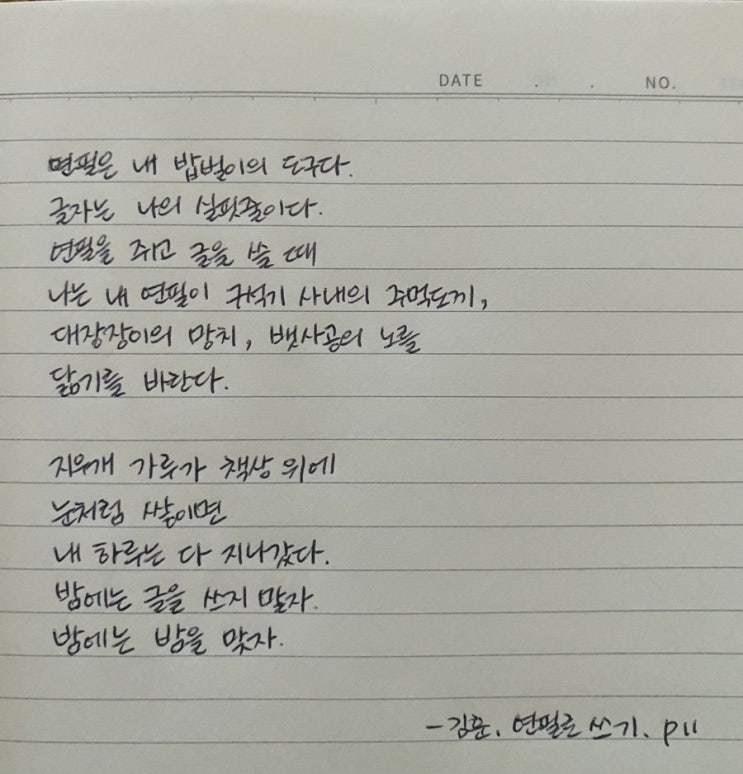 DATE . . NO.
연필은 내 밥벌이의 도구다.
글자는 나의 실핏줄이다.
연필을 쥐고 글을 쓸 때
나는 내 연필이 구석기 사내의 주먹도끼,
대장장이의 망치, 뱃사공의 노를
닮기를 바란다.
지우개 가루가 책상 위에
눈처럼 쌓이면
내 하루는 다 지나갔다.
밤에는 글을 쓰지 말자.
밤에는 밤을 맞자.
- 김훈. 연필로 쓰기. p11